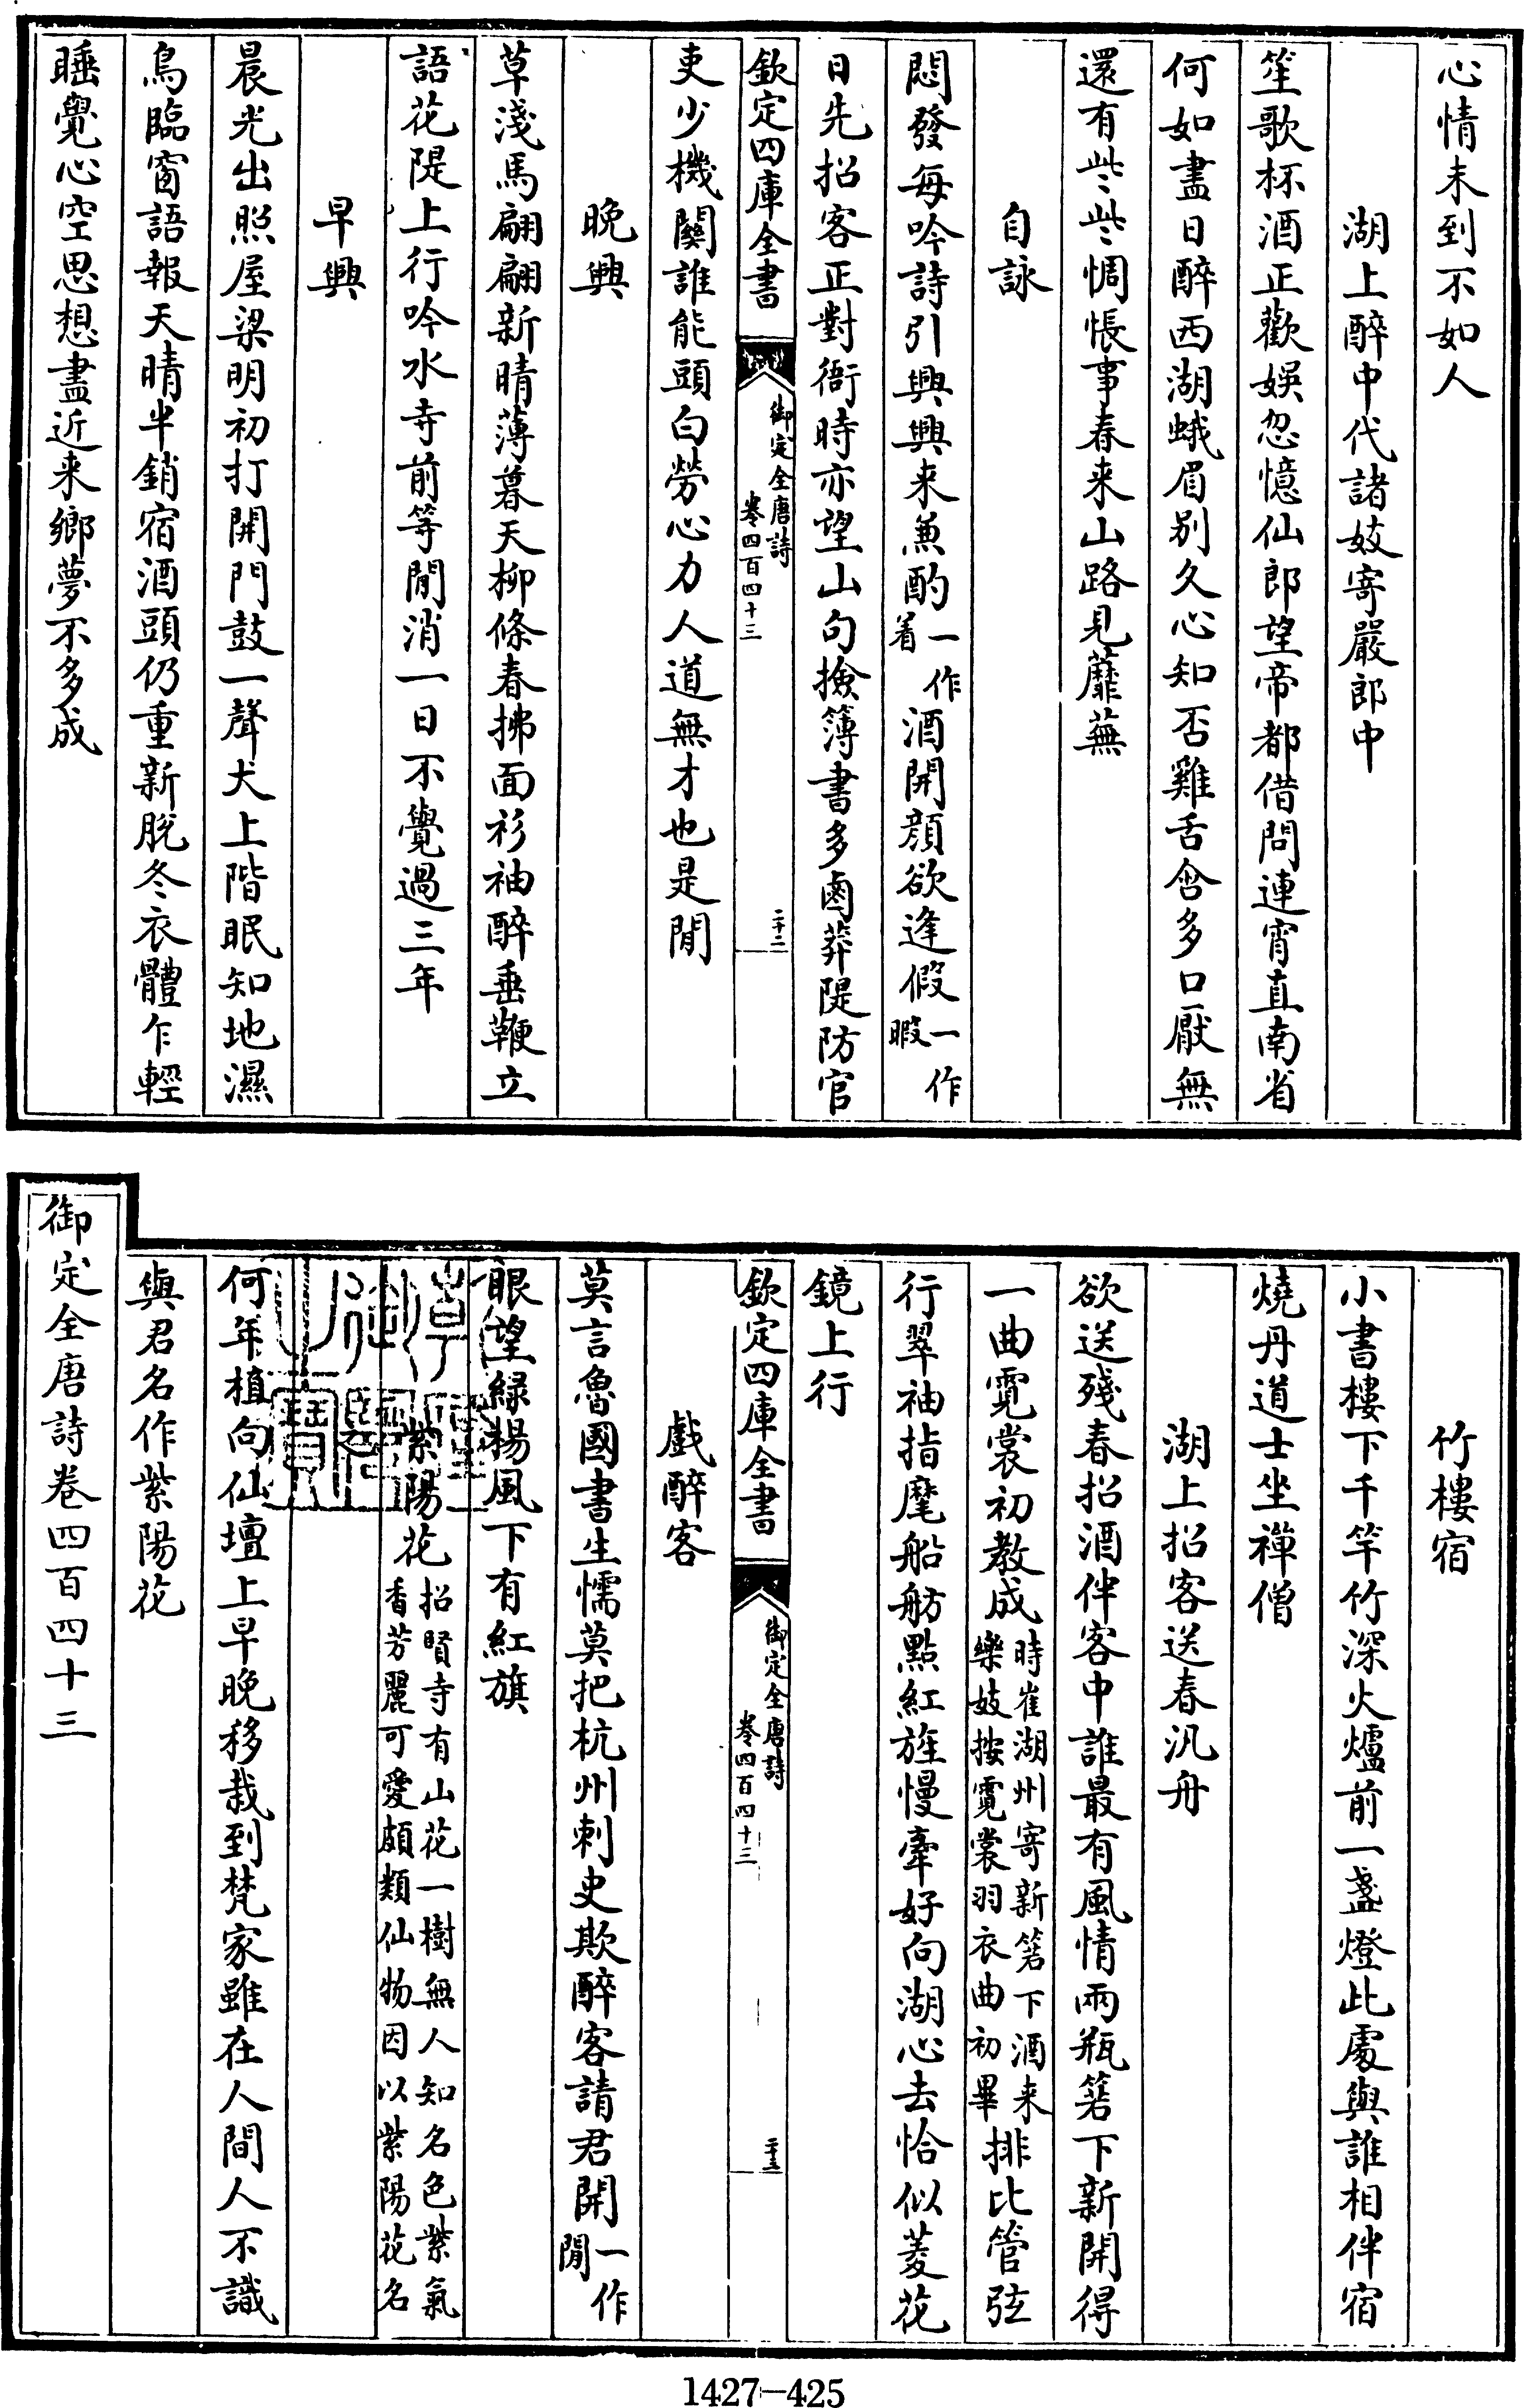 心情未到不如人
湖上醉中代諸妓寄嚴郎中
笙歌杯酒正歡娛忽憶仙郎望帝都借問連宵直南省
何如盡日醉西湖蛾眉别久心知否雞舌含多口厭無
還有些些惆悵事春来山路見蘼蕪
自詠
悶發每吟詩引興興来兼酌一作着酒開顔欲逢假一作暇
日先招客正對衙時亦望山句撿簿書多鹵莽隄防官
欽定四庫全書
御定全唐詩
卷四百四十三
二十二
吏少機關誰能頭白勞心力人道無才也是閒
晚興
草淺馬翩翩新晴薄暮天柳條春拂面衫袖醉垂鞭立
語花隄上行吟水寺前等閒消一日不覺過三年
早興
晨光出照屋梁明初打開門鼓一聲犬上階眠知地濕
鳥臨窗語報天晴半銷宿酒頭仍重新脫冬衣體乍輕
睡覺心空思想盡近来鄉夢不多成
竹樓宿
小書樓下千竿竹深火爐前一盞燈此處與誰相伴宿
燒丹道士坐禪僧
湖上招客送春汎舟
欲送殘春招酒伴客中誰最有風情兩瓶箬下新開得
一曲霓裳初教成時崔湖州寄新箬下酒来樂妓按霓裳羽衣曲初畢排比管弦
行翠袖指麾船舫點紅旌慢牽好向湖心去恰似菱花
鏡上行
欽定四庫全書
御定全唐詩
卷四百四十三
二十三
戲醉客
莫言魯國書生懦莫把杭州刺史欺醉客請君開一作閒
眼望緑楊風下有紅旗
紫陽花招賢寺有山花一樹無人知名色紫氣香芳麗可愛頗類仙物因以紫陽花名
何年植向仙壇上早晚移栽到梵家雖在人間人不識
與君名作紫陽花
御定全唐詩卷四百四十三
1427-425